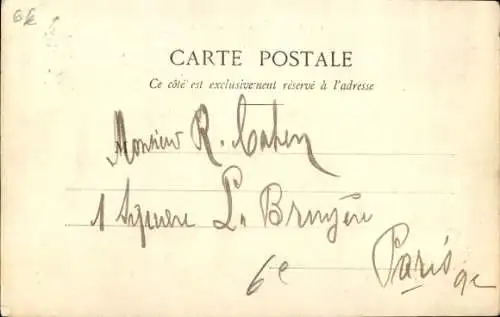 6k
CARTE POSTALE
Ce côté est exclusivement réservé à l'adresse
Monsieur R. Cahen
1 Square La Bruyère
6e Paris 9e